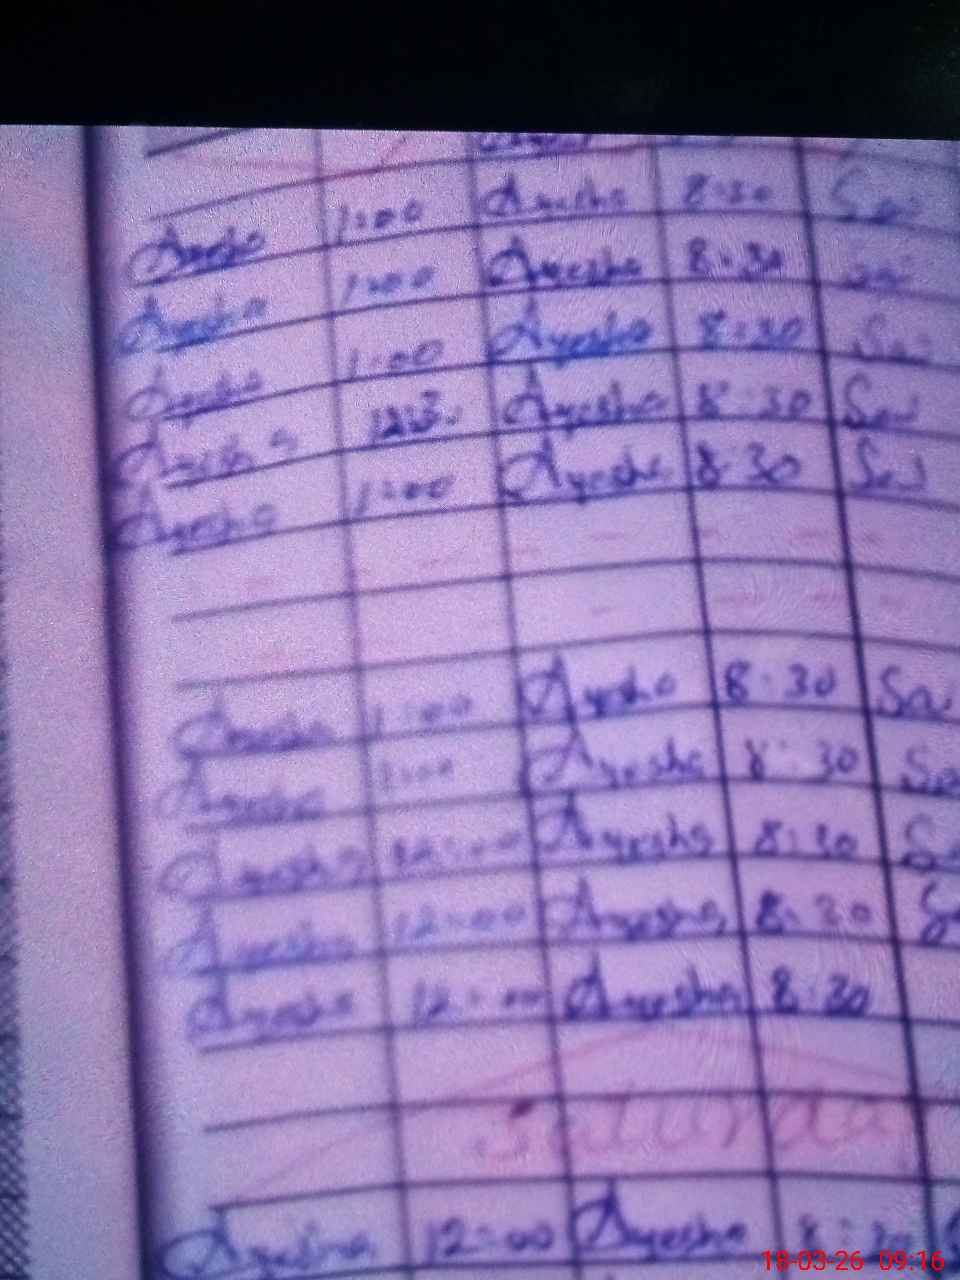 Ayesha 1:00 Ayesha 8:30
Ayesha 1:00 Ayesha 8:30
Ayesha 1:00 Ayesha 8:30
Ayesha 12:30 Ayesha 8:30
Ayesha 1:00 Ayesha 8:30
Ayesha 1:00 Ayesha 8:30
Ayesha 1:00 Ayesha 8:30
Ayesha 12:00 Ayesha 8:30
Ayesha 12:00 Ayesha 8:30
Ayesha 12:00 Ayesha 8:30
Saturda
Ayesha 12:00 Ayesha 8:30
18-03-26 09:16